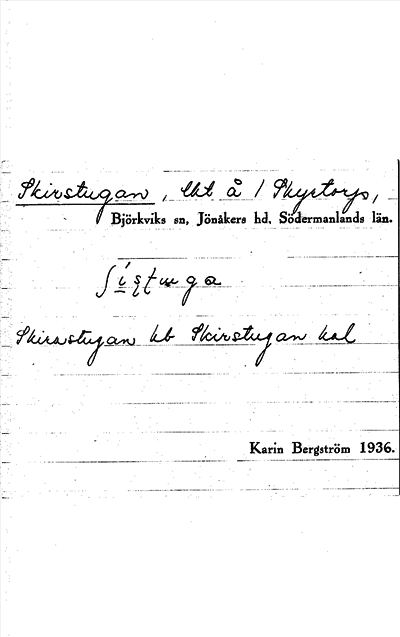 Skirstugan, lht å 1 Skyrtorp,
Björkviks sn, Jönåkers hd, Södermanlands län.
Skirastugan hb Skirstugan kal
Karin Bergström 1936.